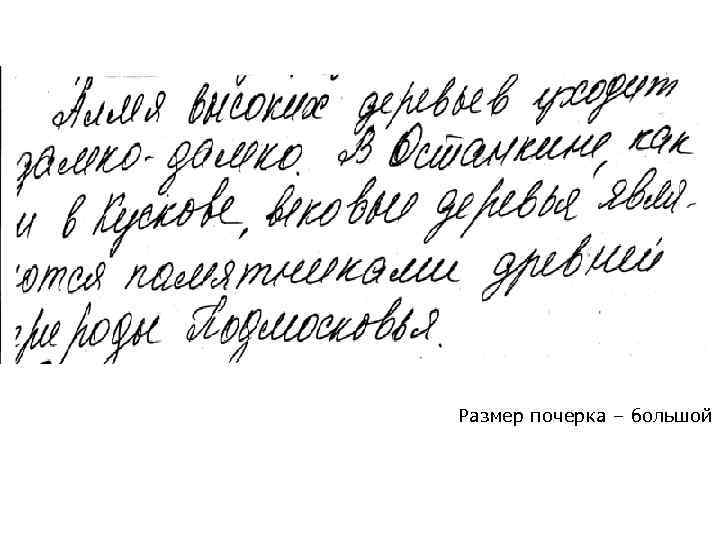 Аллея высоких деревьев уходит
далеко-далеко. В Останкине, как
и в Кускове, вековые деревья явля-
ются памятниками древней
природы Подмосковья.
Размер почерка – большой